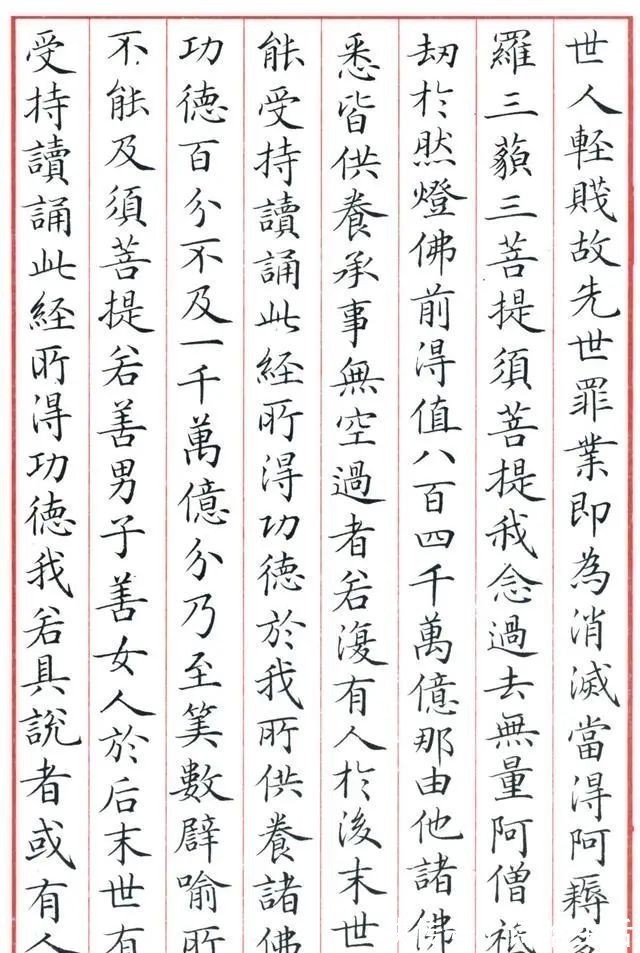 世人軽賤故先世罪業即為消滅當得阿耨多
羅三藐三菩提須菩提我念過去無量阿僧祇
劫於然燈佛前得值八百四千萬億那由他諸佛
悉皆供養承事無空過者若復有人於後末世
能受持讀誦此経所得功德於我所供養諸佛
功德百分不及一千萬億分乃至筭數譬喻所
不能及須菩提若善男子善女人於后末世有
受持讀誦此経所得功德我若具說者或有人